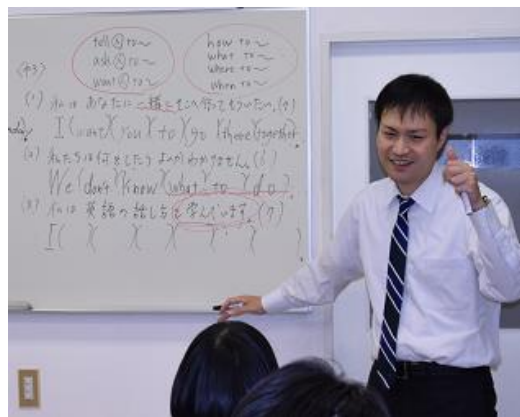 tell Ⓐ to〜
ask Ⓐ to〜
want Ⓐ to〜
how to〜
what to〜
where to〜
when to〜
〈中3〉
(1) 私は あなたに 一緒にそこへ行ってもらいたい。(7)
I (want)(you)(to)(go)(there)(together).
(2) 私たちは何をしたらよいかわかりません。(6)
We (don't)(know)(what)(to)(do).
(3) 私は 英語の話し方を学んでいます。(7)
I ( )( )( )( )( )( ).